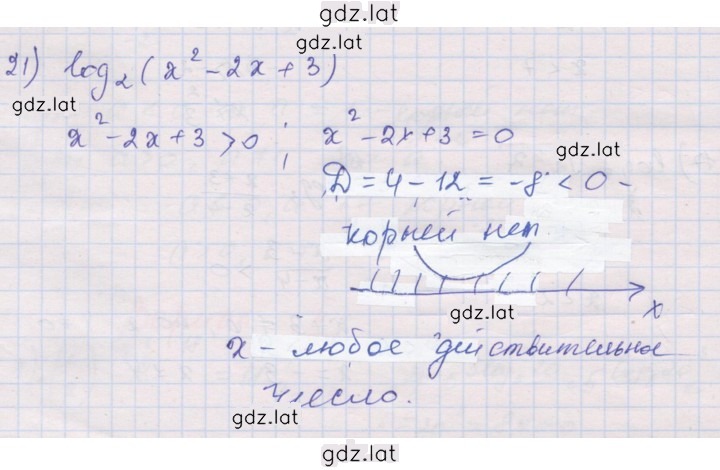 gdz.lat
gdz.lat
21) log₂(x² - 2x + 3)
gdz.lat
x² - 2x + 3 > 0 ; x² - 2x + 3 = 0
gdz.lat
D = 4 - 12 = -8 < 0 -
корней нет.
gdz.lat
x
x - любое действительное
число.
gdz.lat
gdz.lat